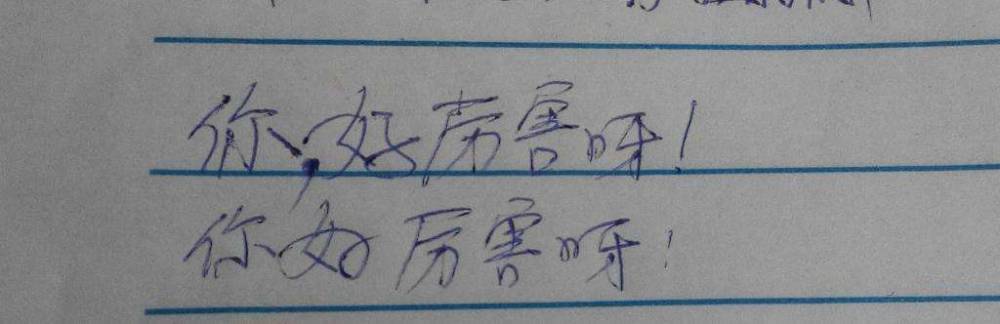 你,好厉害呀!
你好厉害呀!